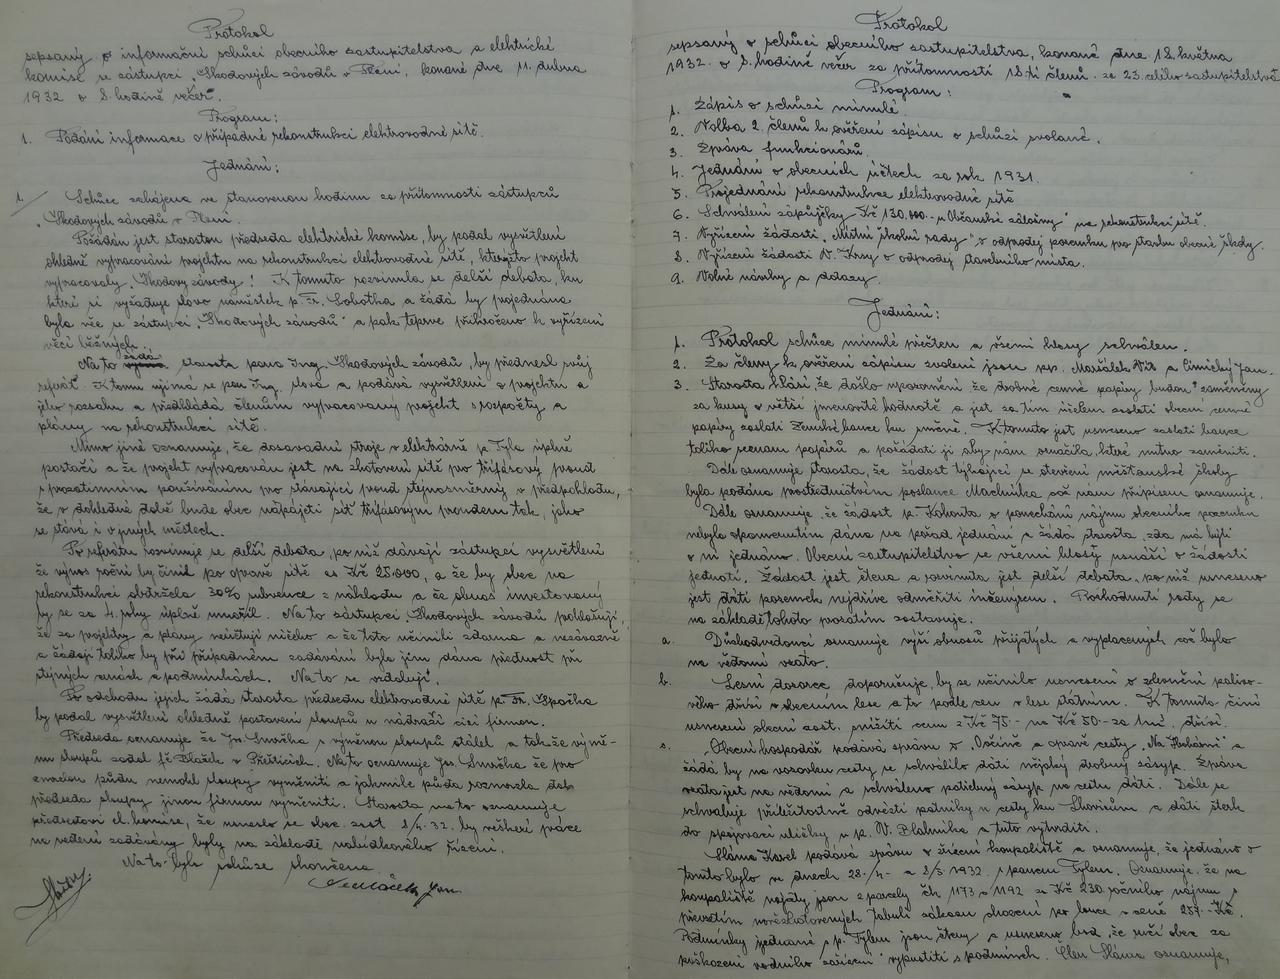 Protokol
sepsaný o informační schůzi obecního zastupitelstva a elektrické
komise se zástupci „Škodových závodů v Plzni", konané dne 11. dubna
1932 o 8. hodině večer.
Program:
1. Podání informace o případné rekonstrukci elektrovodné sítě.
Jednání:
1. Schůze zahájena ve stanovenou hodinu za přítomnosti zástupců
„Škodových závodů v Plzni.
Požádán jest starostou předseda elektrické komise, by podal vysvětlení
ohledně vypracování projektu na rekonstrukci elektrovodné sítě, kterýžto projekt
vypracovaly „Škodovy závody". K tomuto rozvinula se delší debata, ku
které si vyžaduje slovo náměstek p. Fr. Sobotka a žádá by projednána
byla věc se zástupci „Škodových závodů" a pak teprve přikročeno k vyřízení
věcí běžných.
Na to žádá starosta pana Ing. Škodových závodů, by přednesl svůj
referát. K tomu ujímá se pan Ing. slova a podává vysvětlení o projektu a
jeho rozsahu a předkládá členům vypracovaný projekt s rozpočty a
plány na rekonstrukci sítě.
Mimo jiné oznamuje, že dosavadní stroje v elektrárně p. Tyla úplně
postačí a že projekt vypracován jest na zhotovení sítě pro třífásový proud
s prozatimním používáním pro stávající proud stejnosměrný v předpokladu,
že v dohledné době bude obec nápájeti síť třífásovým proudem tak, jako
se stává i v jiných městech.
Po referátu rozvinuje se delší debata, po níž dávají zástupci vysvětlení
že výnos roční by činil po opravě sítě as Kč 25.000, a že by obec na
rekonstrukci obdržela 30% subvence z nákladu a že obnos investovaný
by se za 4 roky úplně umořil. Na to zástupci Škodových závodů prohlašují,
že za projekty a plány neúčtují ničeho a že toto učinili zdarma a nezávazně
a žádají toliko by při případném zadávání byla jim dána přednost při
stejných cenách a podmínkách. Na to se vzdalují.
Po odchodu jejich žádá starosta předsedu elektrovodné sítě p. Fr. Špačka
by podal vysvětlení ohledně postavení sloupů u nádraží cizí firmou.
Předseda oznamuje že Jos. Smrčka s výměnou sloupů otálel a takže výmě-
nu sloupů zadal fě Blažek v Přešticích. Na to oznamuje Jos. Smrčka že pro
zmrzlou půdu nemohl sloupy vyměniti a jakmile půda rozmrzla dal
předseda sloupy jinou firmou vyměniti. Starosta na to oznamuje
předsedovi el. komise, že usneslo se obec. zast. 8/4. 32. by veškeré práce
na vedení zadávány byly na základě nabídkového řízení.
Na to byla schůze skončena.

Protokol
sepsaný o schůzi obecního zastupitelstva, konané dne 18. května
1932. o 8. hodině večer za přítomnosti 18.ti členů. ze 23. celého zastupitelstva
Program:
1. Zápis o schůzi minulé.
2. Volba 2. členů k ověření zápisu o schůzi svolané.
3. Zpráva funkcionářů.
4. Jednání o obecních účtech za rok 1931.
5. Projednání rekonstrukce elektrovodné sítě
6. Schválení zápůjčky Kč 130.000.- „Občanské záložny" na rekonstrukci sítě.
7. Vyřízení žádosti „Místní školní rady" o odprodej pozemku pro stavbu obecné školy.
8. Vyřízení žádosti V. Krsy o odprodej stavebního místa.
9. Volné návrhy a dotazy.
Jednání:
1. Protokol schůze minulé přečten a všemi hlasy schválen.
2. Za členy k ověření zápisu zvoleni jsou pp. Maršálek Vít a Cinický Jan.
3. Starosta hlásí, že došlo upozornění že drobné cenné papíry budou zaměněny
za kusy o větší jmenovité hodnotě a jest za tím účelem zaslati obecní cenné
papíry zaslati Zemské bance ku směně. K tomuto jest usneseno zaslati bance
toliko seznam papírů a požádati ji aby nám označila, které nutno zaměniti.
Dále oznamuje starosta, že žádost týkající se otevření měšťanské školy
byla podána prostřednictvím poslance Machníka což nám přípisem oznamuje.
Dále oznamuje, že žádost p. Kohouta o ponechání nájmu obecního pozemku
nebyla opomenutím dána na pořad jednání a žádá starosta, zda má býti
o ní jednáno. Obecní zastupitelstvo se všemi hlasy usnáší o žádosti
jednati. Žádost jest čtena a rozvinuta jest delší debata, po níž usneseno
jest dáti pozemek nejdříve odměřiti inženýrem. Rozhodnutí rady se
na základě tohoto prozatím zastavuje.
a. Důchodvedoucí oznamuje výši obnosů přijatých a vyplacených což bylo
na vědomí vzato.
b. Lesní dozorce doporučuje, by se učinilo usnesení o zlevnění paliso-
vého dříví v obecním lese a to podle cen v lese státním. K tomuto činí
usnesení obecní zast. snížiti cenu z Kč 75.- na Kč 50.- za 1m². dříví.
c. Obecní hospodář podává zprávu o „Občině" a opravě cesty „Na Skokárni" a
žádá by na vozovku cesty se schválilo dáti nějaký drobný zásyp. Zpráva
vzata jest na vědomí a schváleno potřebný zásyp na cestu dáti. Dále se
schvaluje příležitostně odvézti patníky u cesty ku Skočicům a dáti štěrk
do spojovací uličky u p. V. Blahníka a tuto vytvrditi.
Sláma Karel podává zprávu o zřízení koupaliště a oznamuje, že jednáno o
tomto bylo ve dnech 28./4.- a 2/5. 1932. s panem Tylem. Oznamuje, že na
koupaliště najaty jsou 2 parcely čk. 1173 a 1192 za Kč 230 ročního nájmu s
převzetím nově zhotovených tabulí zákazu chození po louce v ceně 257.- Kč.
Podmínky ujednané s p. Tylem jsou čteny a usneseno bod, že ručí obec za
poškození vodního zařízení vypustiti s podmínek. Člen Sláma oznamuje,